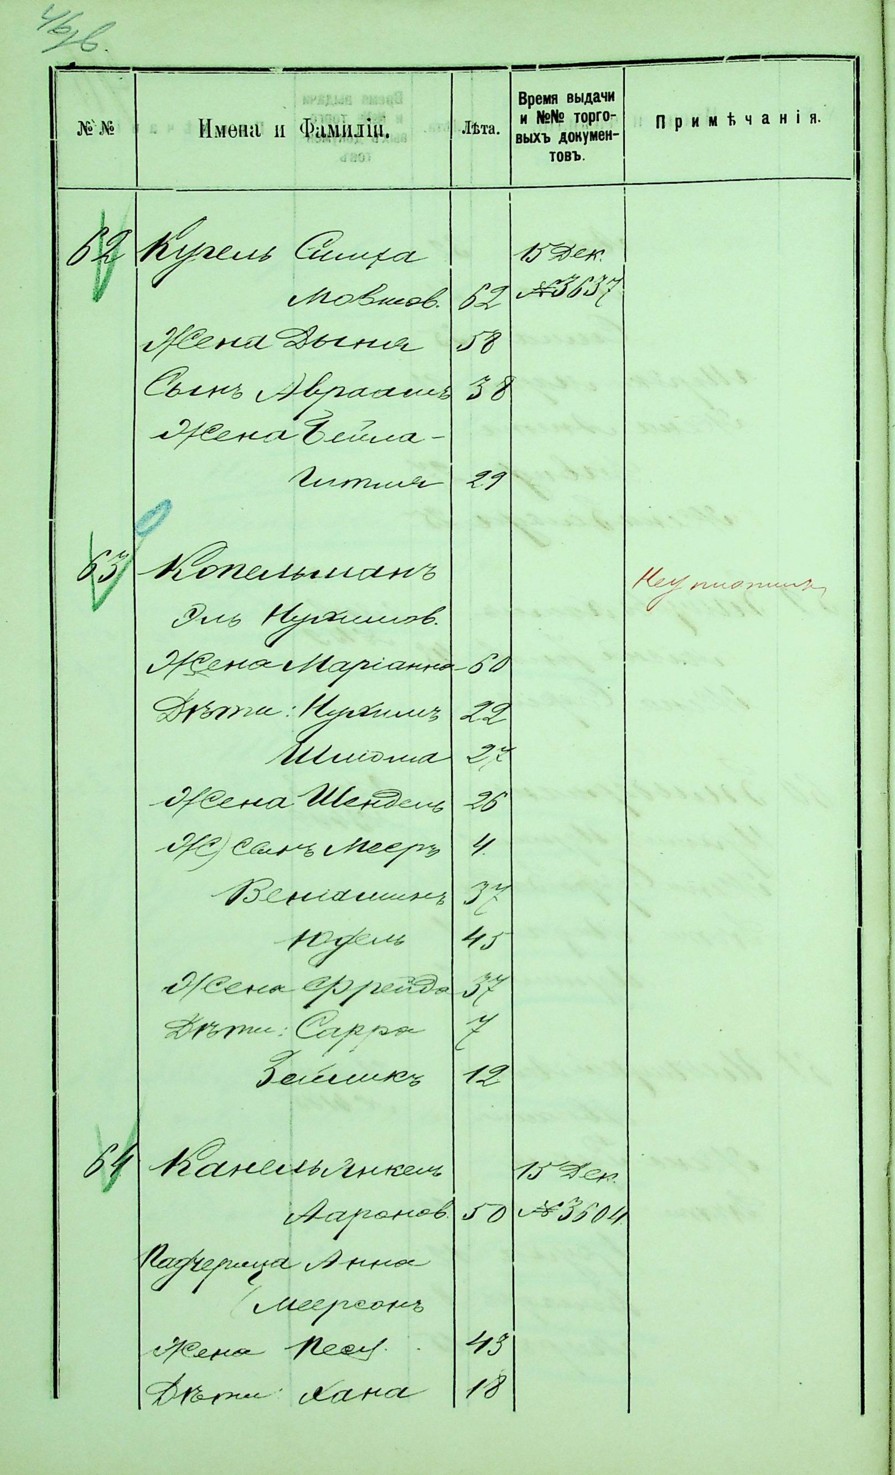 №№ Имена и Фамиліи. Лѣта. Время выдачи и №№ торго-выхъ докумен-товъ. Примѣчанія.
62 Кугель Симха 15 Дек.
Мовшов. 62 №3637
Жена Дыня 58
Сынъ Авраамъ 38
Жена Бейла-
Гитля 29
63 Копельманъ
Эль Нухимов.
Жена Маріанна 60
Дѣти: Нухимъ 22
Шлома 27
Жена Шендель 26
Ж) сынъ Мееръ 4
Веніаминъ 37
Юдель 45
Жена Фрейда 37
Дѣти: Сарра 7
Зеликъ 12
64 Канель Янкель 15 Дек.
Ааронов. 50 №3604
Падчерица Анна
Меерсонъ
Жена Песя 43
Дѣти: Хана 18